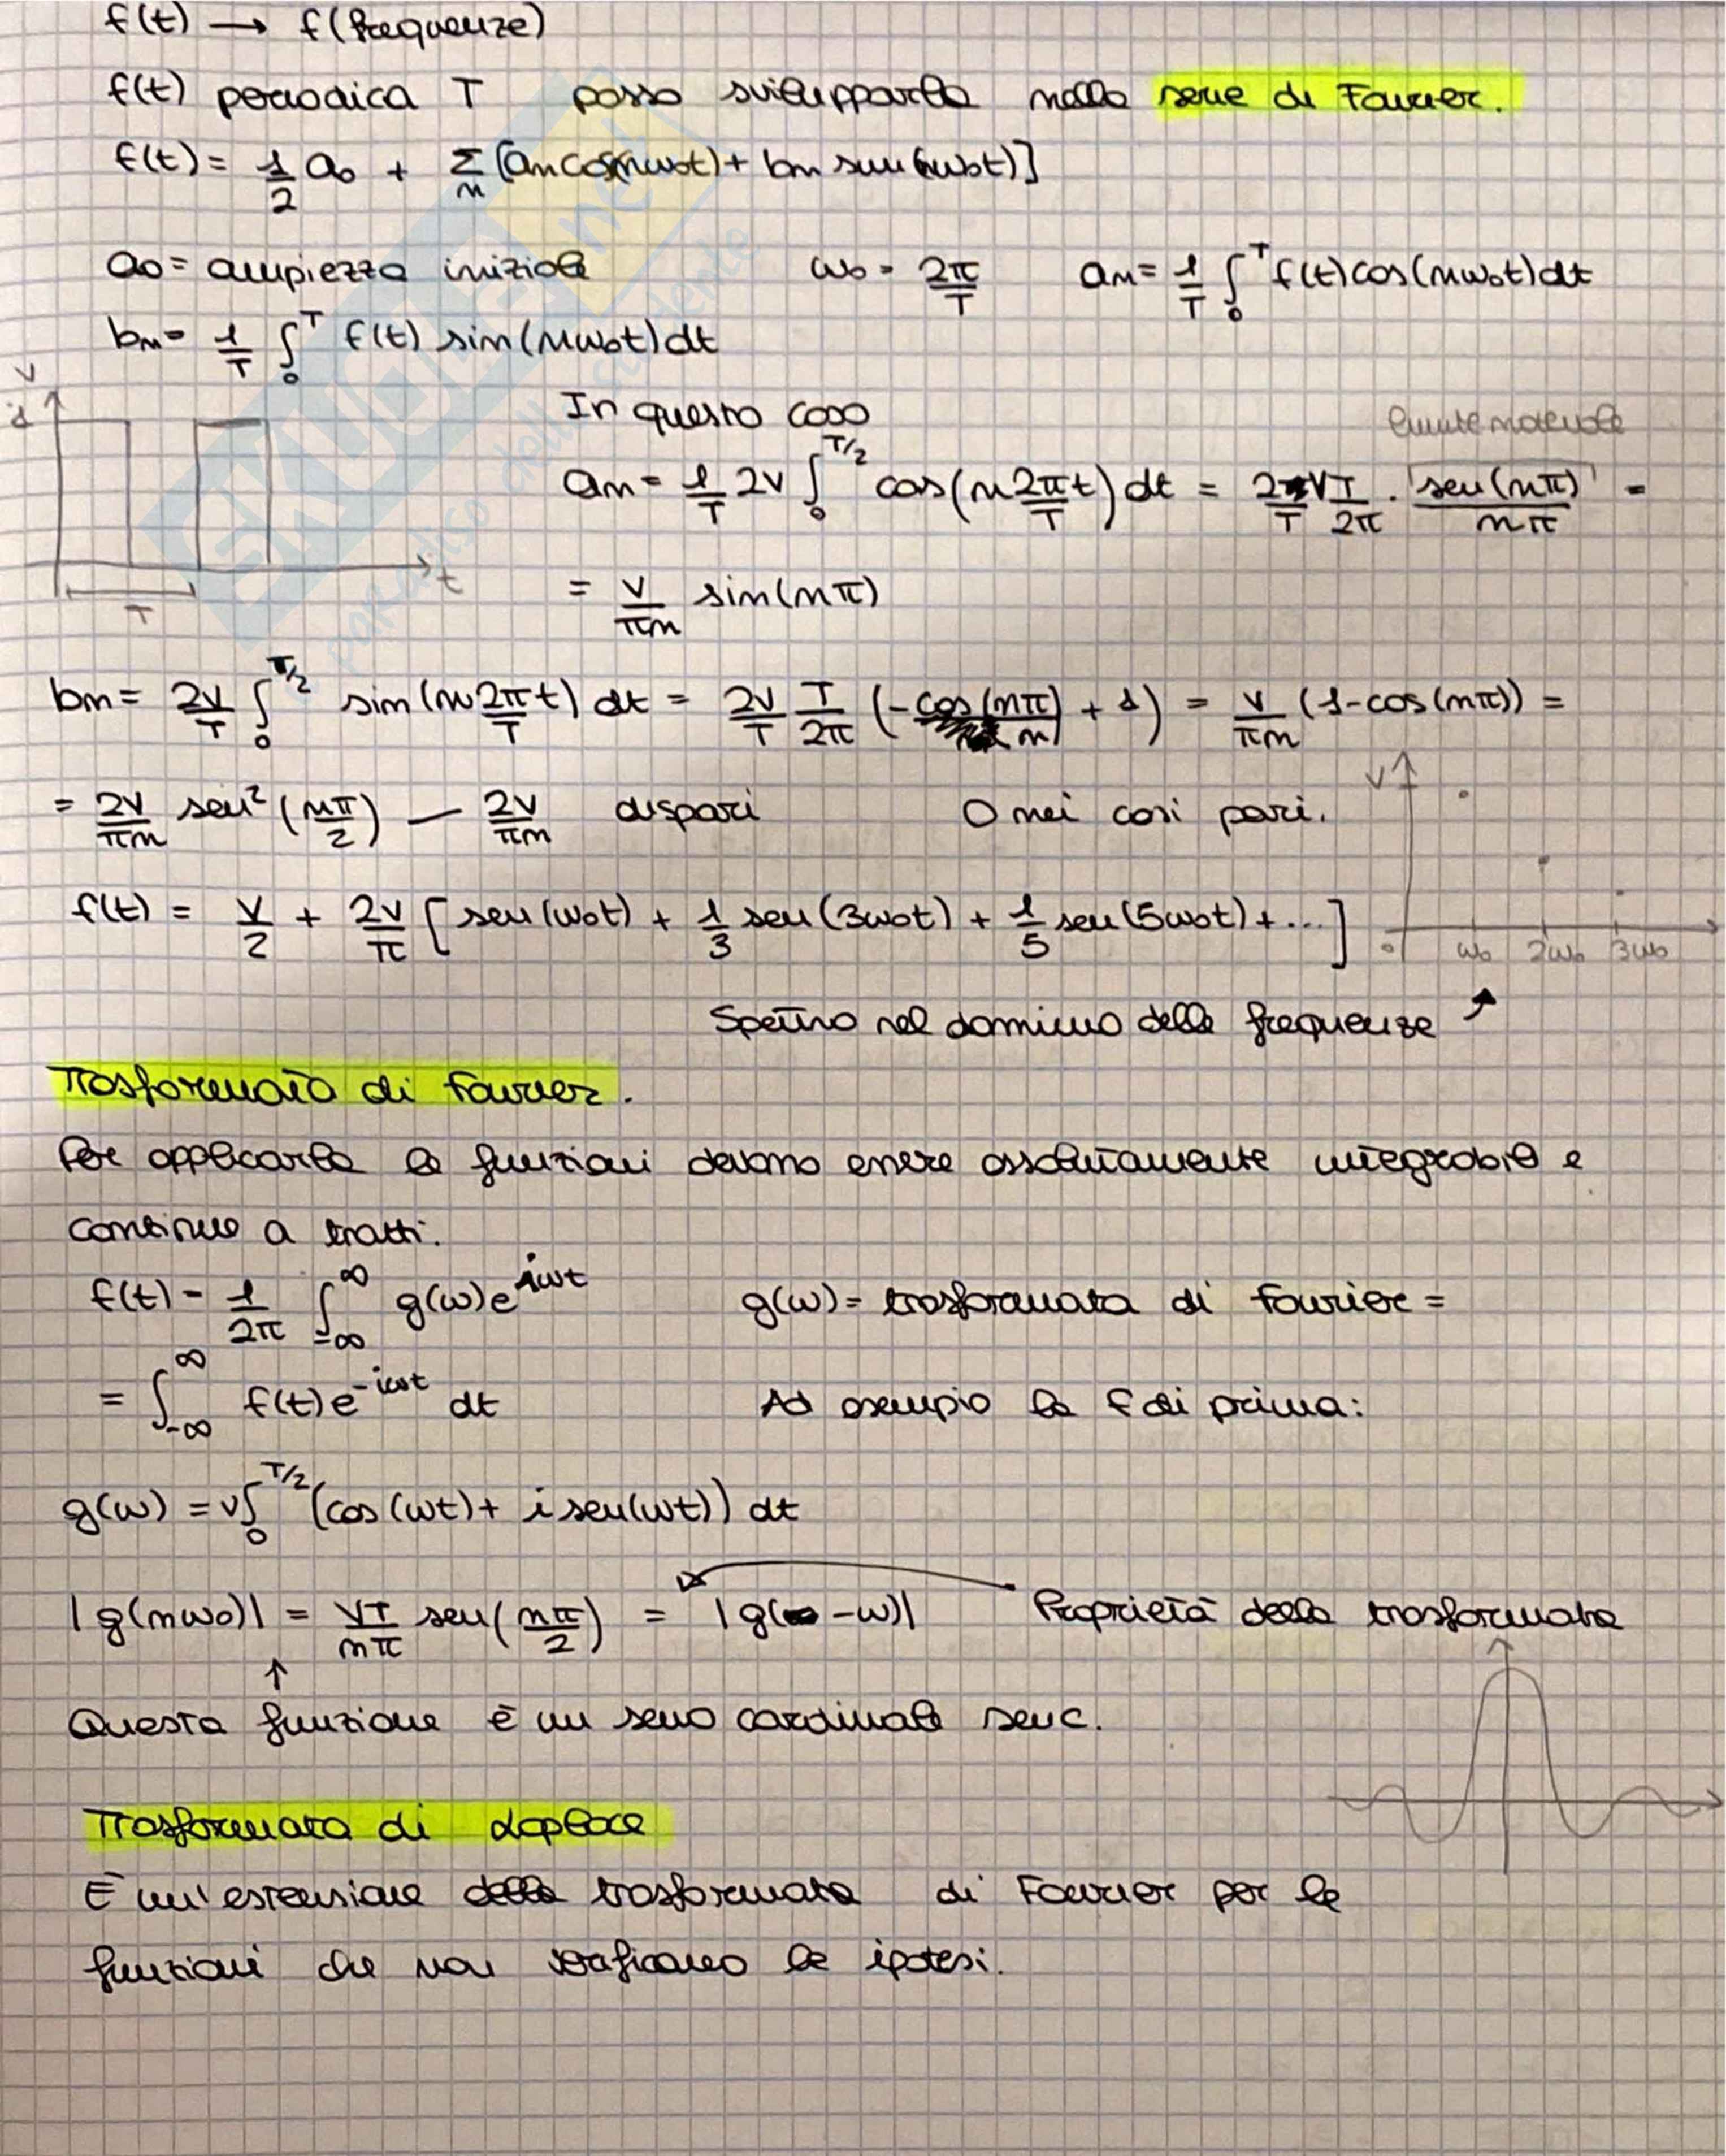 f(t) → f(frequenze)
f(t) periodica T posso svilupparla nella serie di Fourier.
f(t) = 1/2 a₀ + Σₙ [aₙcos(nω₀t) + bₙ sen(nω₀t)]
a₀ = ampiezza iniziale ω₀ = 2π/T aₙ = 1/T ∫₀ᵀ f(t)cos(nω₀t)dt
bₙ = 1/T ∫₀ᵀ f(t) sin(nω₀t)dt
V
t
T
In questo caso
limite notevole
aₙ = 1/T 2V ∫₀^(T/2) cos(n 2π/T t) dt = 2V/T T/2π · sen(nπ)/nπ =
= V/πn sin(nπ)
bₙ = 2V/T ∫₀^(T/2) sin(n 2π/T t) dt = 2V/T T/2π (-cos(nπ)/n + 1) = V/πn (1-cos(nπ)) =
= 2V/πn sen²(nπ/2) — 2V/πn dispari 0 nei casi pari.
f(t) = V/2 + 2V/π [sen(ω₀t) + 1/3 sen(3ω₀t) + 1/5 sen(5ω₀t) + ...]
V
0 ω₀ 2ω₀ 3ω₀
Spettro nel dominio delle frequenze ↗
Trasformata di Fourier.
Per applicarla le funzioni devono essere assolutamente integrabile e
continue a tratti.
f(t) = 1/2π ∫₋∞^∞ g(ω)e^(iωt) g(ω) = trasformata di Fourier =
= ∫₋∞^∞ f(t)e^(-iωt) dt Ad esempio la f di prima:
g(ω) = V∫₀^(T/2) (cos(ωt) + i sen(ωt)) dt
|g(nω₀)| = VT/nπ sen(nπ/2) = |g(-ω)| Proprietà della trasformata
↑
Questa funzione è un seno cardinale senc.
Trasformata di Laplace
È un'estensione della trasformata di Fourier per le
funzioni che non verificano le ipotesi.
SKUOLA.net
paradiso dello studente